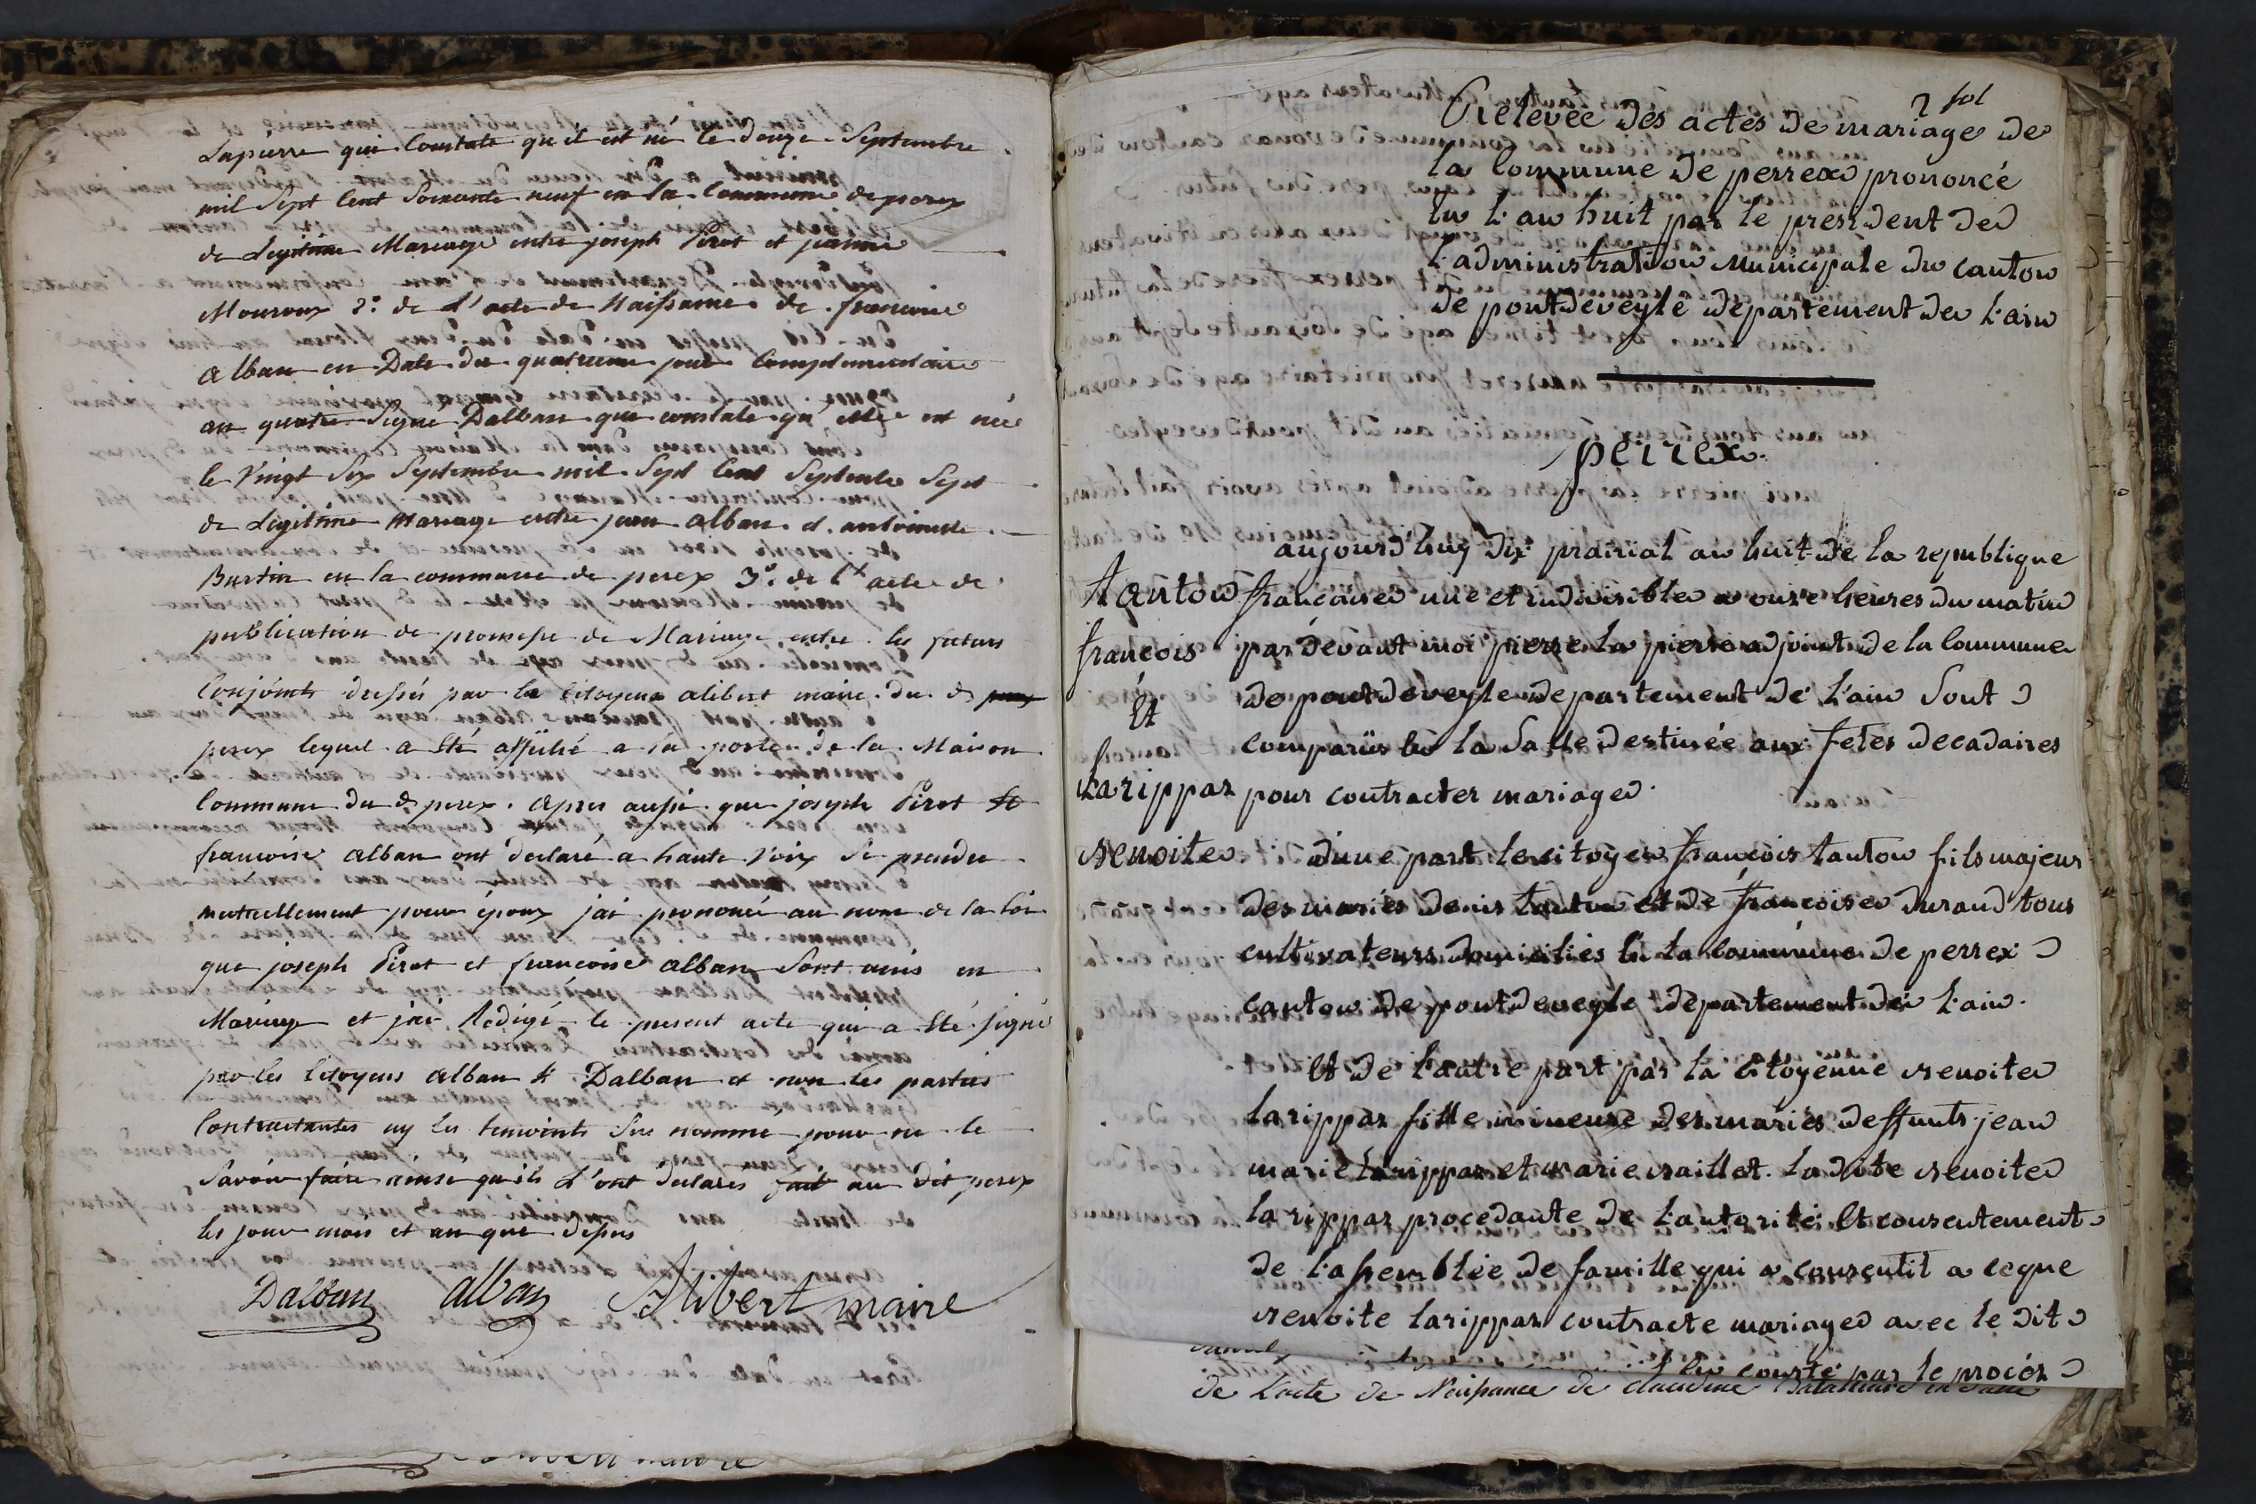 Lapierre qui Constate qu'il est né le douze Septembre
mil Sept Cent Soixante neuf en la Commune de perex
de Legitime Mariage entre joseph Pirot et jeanne
Mouroux 2° de L'acte de Naissance de francoise
Alban en Date du quatrieme jour Complementaire
an quatre Signé Dalban que constate qu'elle est née
le Vingt Six Septembre mil Sept Cent Septente Sept
de Legitime Mariage entre jean alban et antoinette
Burtin en la commune de perex 3° de l'acte de
publication de promesse de Mariage entre les futurs
Conjoints dressés par le Citoyens alibert maire du d
perex lequel a Eté affiché a la porte de la Maison
Commune du d perex. apres aussi que joseph Pirot Et
francoise alban ont déclaré a haute Voix Se prendre
mutuellement pour époux j'ai prononcé au nom de la loi
que joseph Pirot et francoise alban Sont unis en
Mariage et j'ai Rédigé le present acte qui a Eté Signé
par les Citoyens alban & Dalban et non les parties
Contractantes ny les temoints Sus nommé pour ne le
Savoir faire ainsi qu'ils L'ont declarés fait au Dit perex
les jour mois et an que Dessus
Dalban alban Alibert maire
2 fol
Relevée des actes de mariage de
la Commune de perrex prononcé
En L'an huit par le president de
L'administration Municipale du canton
de pontdeveyle departement de L'ain
perrex.
aujourd'huy dix prairial an huit de la republique
francaise une et indivisible a onze heures du matin
par devant moi pierre la pierre adjoint de la Commune
de pontdeveyle departement de L'ain Sont
comparüs En la Salle destinée aux fetes decadaires
pour contracter mariage.
tanton
francois
Et
Larippaz
Benoite
d'une part le citoyen francois tanton fils majeur
des mariés denis tanton et de francoise durand tous
cultivateurs domiciliés En la commune de perrex
canton de pontdeveyle departement de L'ain.
Et de L'autre part par la citoyenne Benoite
larippaz fille mineure des mariés deffunts jean
marie larippaz et marie vaillet. la dite Benoite
larippaz procedante de L'autorité Et consentement
de L'assemblée de famille qui a consentit a ceque
Benoite larippaz contracte mariage avec le dit
par le procéz
de L'acte de Naissance de claudine